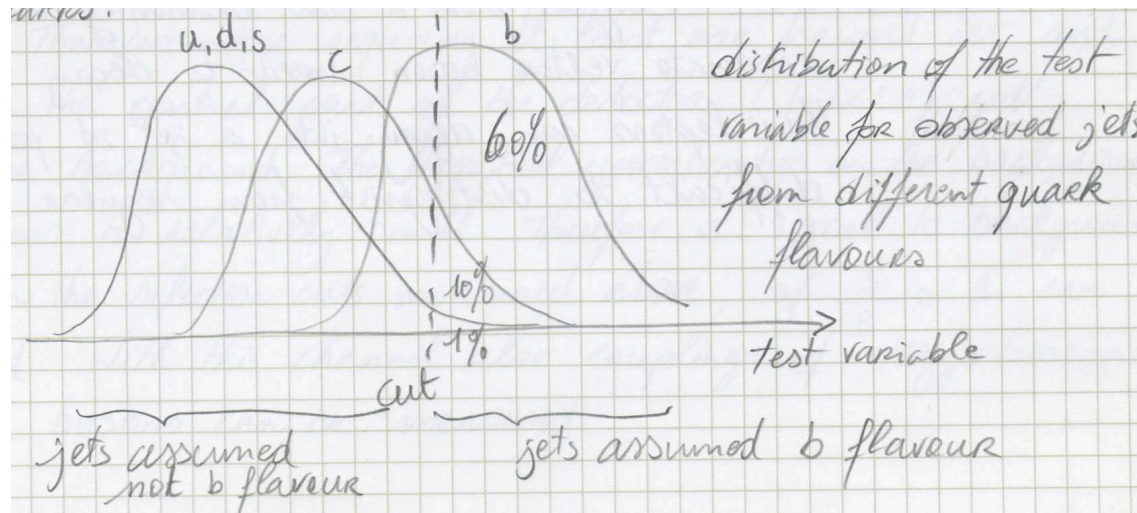 u, d, s
c
b
distribution of the test
variable for observed jets
from different quark
flavours
60%
10%
1%
test variable
cut
jets assumed
not b flavour
jets assumed b flavour